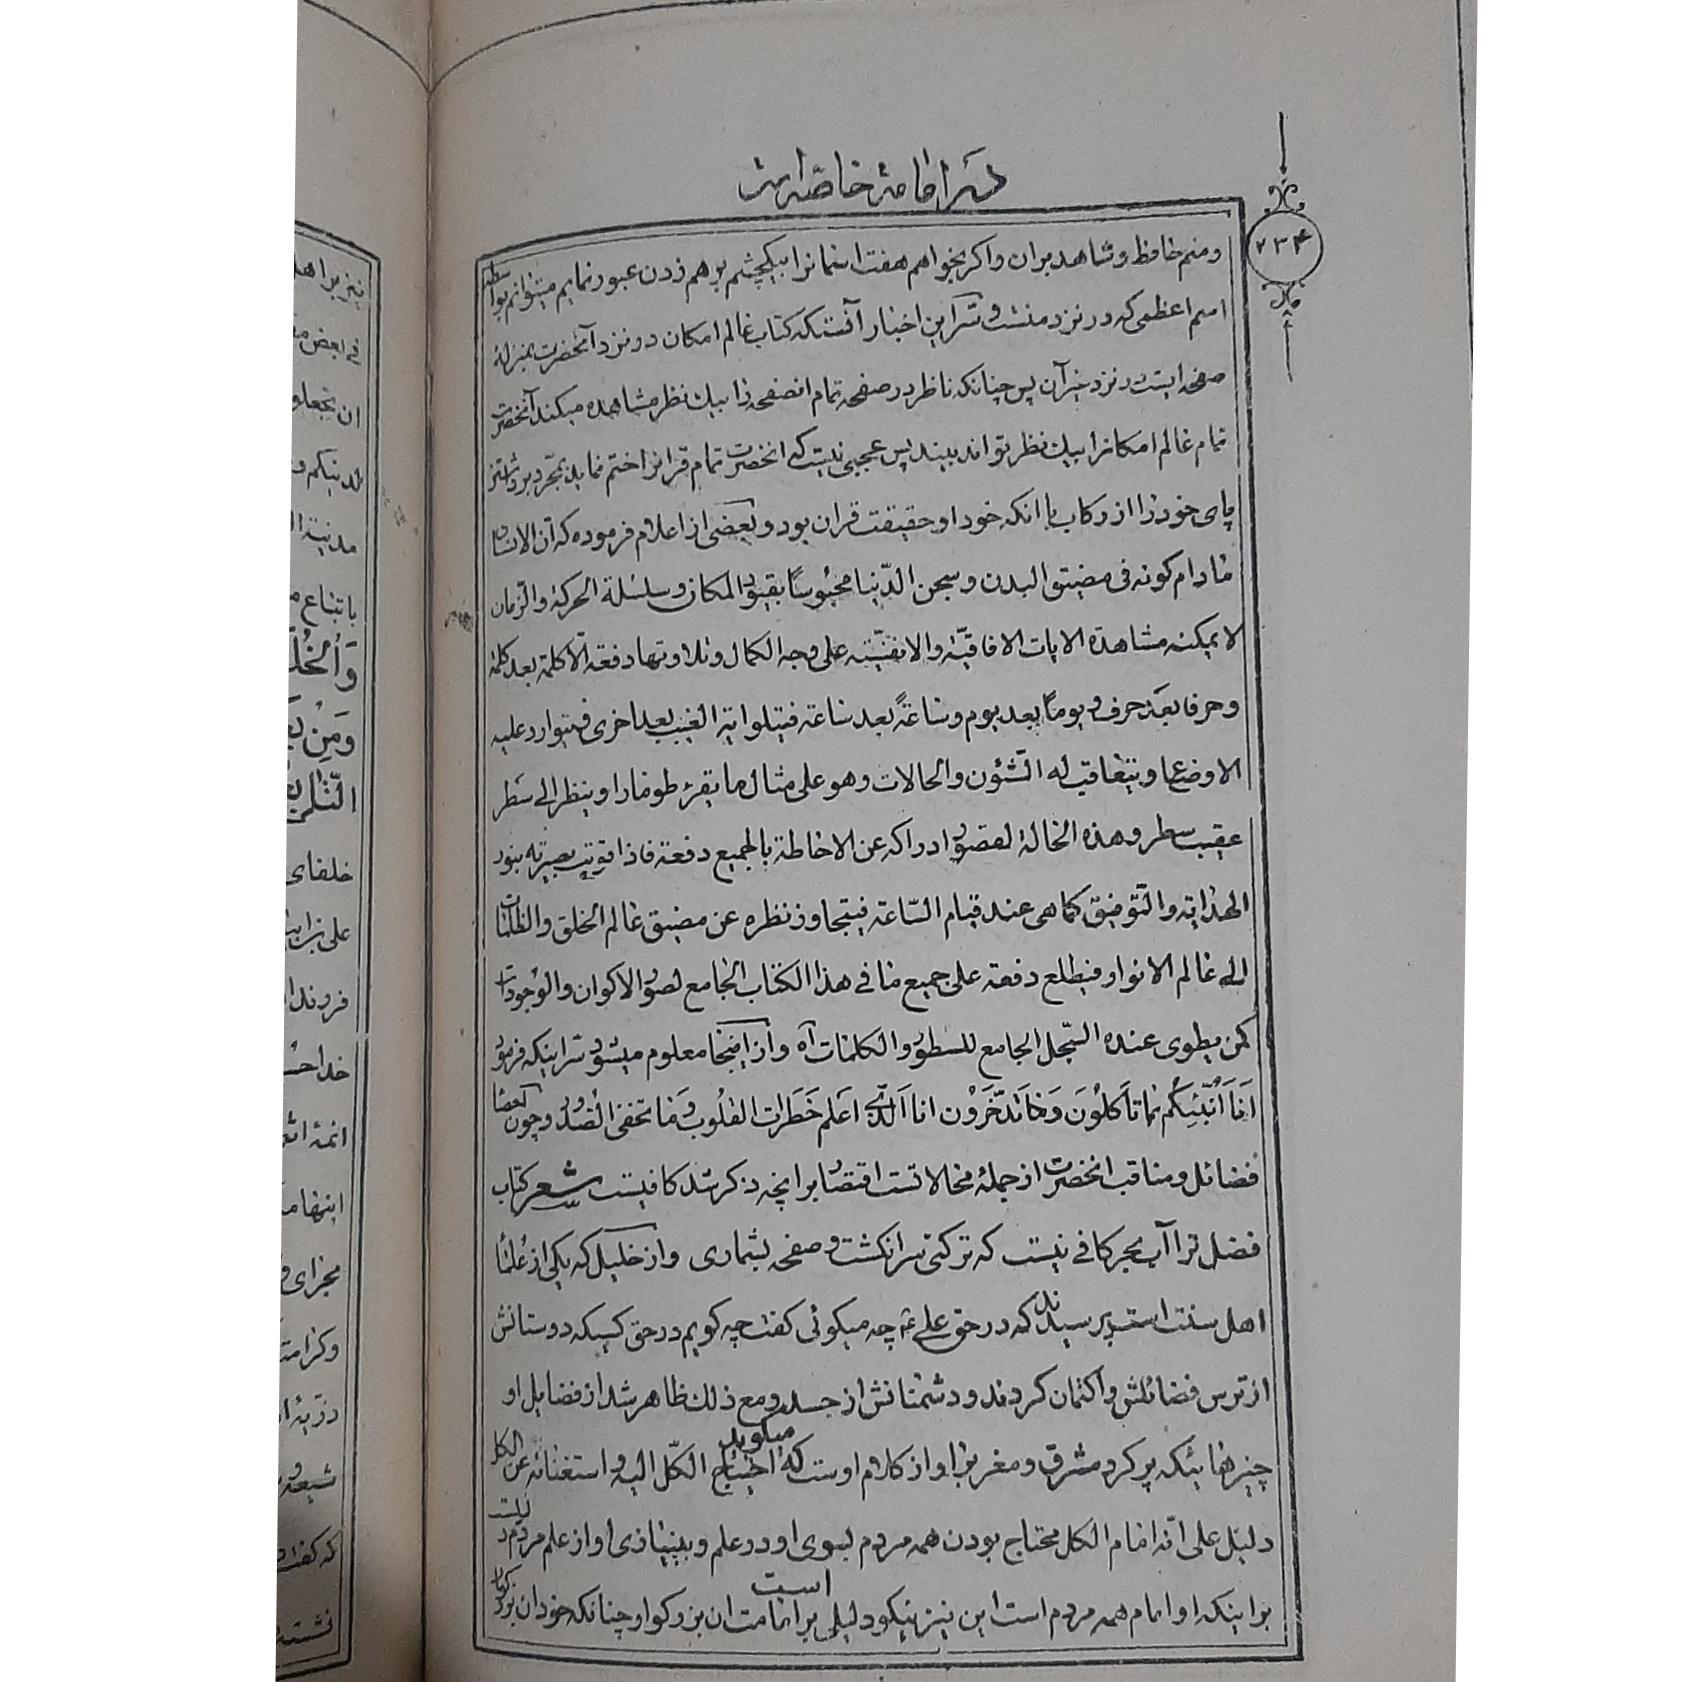 در امامت خاصه است
۲۳۴
ومنم حافظ و شاهد بران و اگر بخواهم هفت اسمانرا بیکچشم بر هم زدن عبور نمایم میتوانم بواسطه
اسم اعظمی که در نزد منست و سر این اخبار آنستکه کتاب عالم امکان در نزد آنحضرت بمنزلهٔ
صفحه ایست در نزد غیر آن پس چنانکه ناظر در صفحه تمام انصفحه را بیک نظر مشاهده میکند آنحضرت
تمام عالم امکانرا بیک نظر تواند ببیند پس عجبی نیست که انحضرت تمام قرانرا ختم نماید بمجرد برداشتن
پای خود را از رکاب با انکه خود او حقیقت قران بود و بعضی از اعلام فرموده که ان الانسان
مادام کونه فی مضیق البدن و سجن الدّنیا محبوسًا بقیود المکان و سلسلة الحرکة و الزمان
لا یمکنه مشاهدة الایات الافاقیّة و الانفسیّة علی وجه الکمال و تلاوتها دفعة الّا کلمة بعد کلمة
و حرفا بعد حرف و یومًا بعد یوم و ساعةً بعد ساعة فیتلوا ایة الغیب بعد اخری فیتوارد علیه
الاوضاع و یتعاقب له الشّئون و الحالات و هو علی مثال ما یقرء طومارا و ینظر الی سطر
عقیب سطر و هذه الحالة لقصور ادراکه عن الاحاطة بالجمیع دفعة فاذا قویت بصیرته بنور
الهدایة و التّوفیق کما هی عند قیام السّاعة فیتجاوز نظره عن مضیق عالم الخلق و الظلمات
الی عالم الانوار فیطلع دفعة علی جمیع ما فی هذا الکتاب الجامع لصور الاکوان و الوجودات
کمن یطوی عنده السّجل الجامع للسطور و الکلمات آه و از اینجا معلوم میشود سر اینکه فرمود
اَنَا اُنَبِّئِکُم بما تَاکلُونَ وَ مَا تَدَّخَرَوْن انا اَلّذی اَعلم خَطَرات القلُوب وَ مَا تخفی الصّدور و چون احصاء
فضائل و مناقب انحضرت از جملهٔ محالاتست اقتصار برانچه ذکر شد کافیست شعر کتاب
فضل ترا آب بحر کافی نیست که تر کنی سر انگشت و صفحه بشماری و از خلیل که یکی از علماء
اهل سنت است پرسیدند که در حق علی ع چه میگوئی گفت چه گویم در حق کسیکه دوستانش
از ترس فضائلش را کتمان کردند و دشمنانش از حسد و مع ذلک ظاهر شد از فضایل او
چیزهائیکه پر کرد مشرق و مغرب را و از کلام اوست که میگوید احتیاج الکّل الیه و استغنائه عن الکل
دلیل علی انّه امام الکل محتاج بودن همه مردم بسوی او در علم و بینیازی او از علم مردم دلیلست
بر اینکه او امام همه مردم است این نیز نیکو دلیلی است بر امامت ان بزرگوار چنانکه خود ان بزرگوار